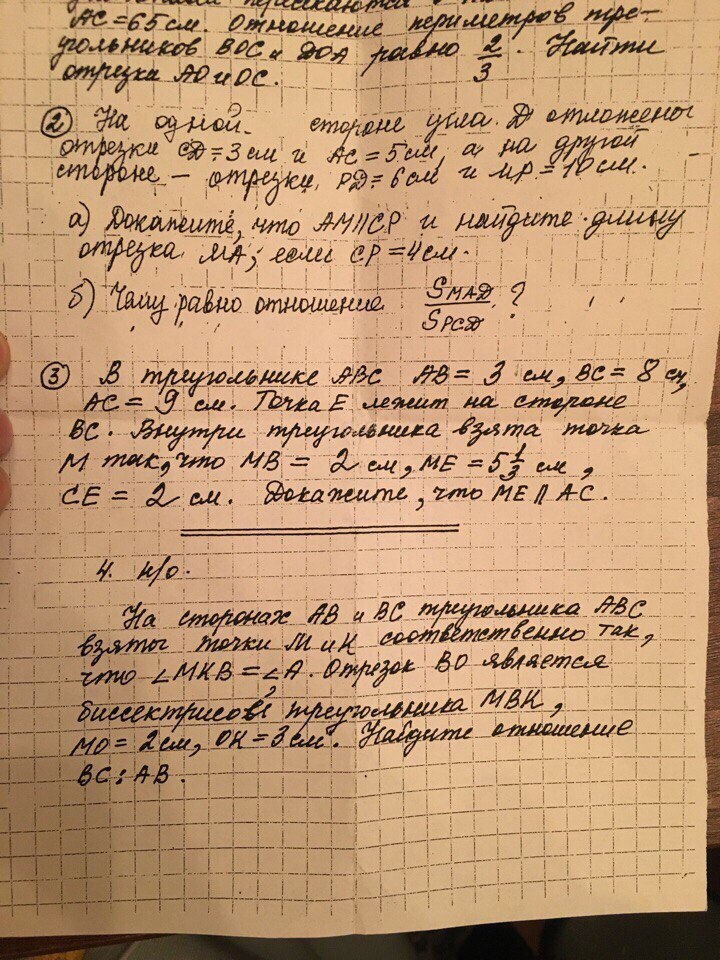 AC = 65 см. Отношение периметров тре-
угольников BOC и DOA равно 2/3. Найти
отрезки AO и OC.
2 На одной стороне угла D отложены
отрезки CD = 3 см и AC = 5 см, а на другой
стороне – отрезки PD = 6 см и MP = 10 см.
а) Докажите, что AM || CP и найдите длину
отрезка MA, если CP = 4 см.
б) Чему равно отношение S MAD / S PCD ?
3 В треугольнике ABC AB = 3 см, BC = 8 см,
AC = 9 см. Точка E лежит на стороне
BC. Внутри треугольника взята точка
M так, что MB = 2 см, ME = 5 1/3 см,
CE = 2 см. Докажите, что ME || AC.
4. н/о.
На сторонах AB и BC треугольника ABC
взяты точки M и K соответственно так,
что ∠MKB = ∠A. Отрезок BO является
биссектрисой треугольника MBK,
MO = 2 см, OK = 3 см. Найдите отношение
BC : AB.